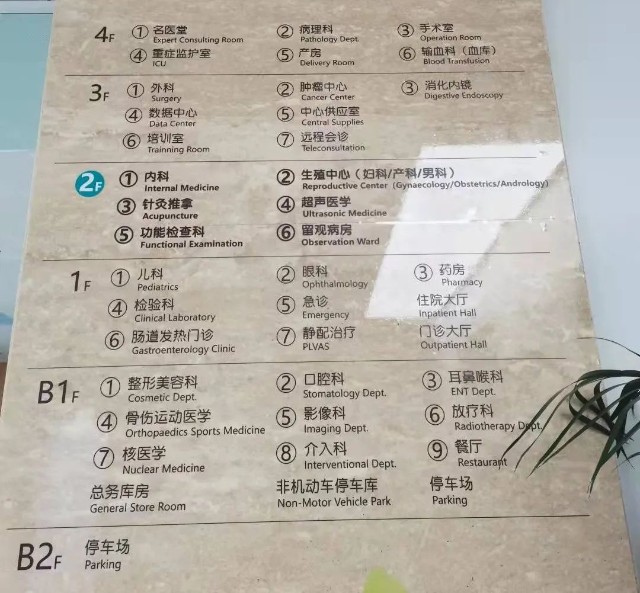 4F ① 名医堂 ② 病理科 ③ 手术室
Expert Consulting Room Pathology Dept. Operation Room
④ 重症监护室 ⑤ 产房 ⑥ 输血科（血库）
ICU Delivery Room Blood Transfusion
3F ① 外科 ② 肿瘤中心 ③ 消化内镜
Surgery Cancer Center Digestive Endoscopy
④ 数据中心 ⑤ 中心供应室
Data Center Central Supplies
⑥ 培训室 ⑦ 远程会诊
Trainning Room Teleconsultation
2F ① 内科 ② 生殖中心（妇科/产科/男科）
Internal Medicine Reproductive Center (Gynaecology/Obstetrics/Andrology)
③ 针灸推拿 ④ 超声医学
Acupuncture Ultrasonic Medicine
⑤ 功能检查科 ⑥ 留观病房
Functional Examination Observation Ward
1F ① 儿科 ② 眼科 ③ 药房
Pediatrics Ophthalmology Pharmacy
④ 检验科 ⑤ 急诊 住院大厅
Clinical Laboratory Emergency Inpatient Hall
⑥ 肠道发热门诊 ⑦ 静配治疗 门诊大厅
Gastroenterology Clinic PLVAS Outpatient Hall
B1F ① 整形美容科 ② 口腔科 ③ 耳鼻喉科
Cosmetic Dept. Stomatology Dept. ENT Dept.
④ 骨伤运动医学 ⑤ 影像科 ⑥ 放疗科
Orthopaedics Sports Medicine Imaging Dept. Radiotherapy Dept.
⑦ 核医学 ⑧ 介入科 ⑨ 餐厅
Nuclear Medicine Interventional Dept. Restaurant
总务库房 非机动车停车库 停车场
General Store Room Non-Motor Vehicle Park Parking
B2F 停车场
Parking